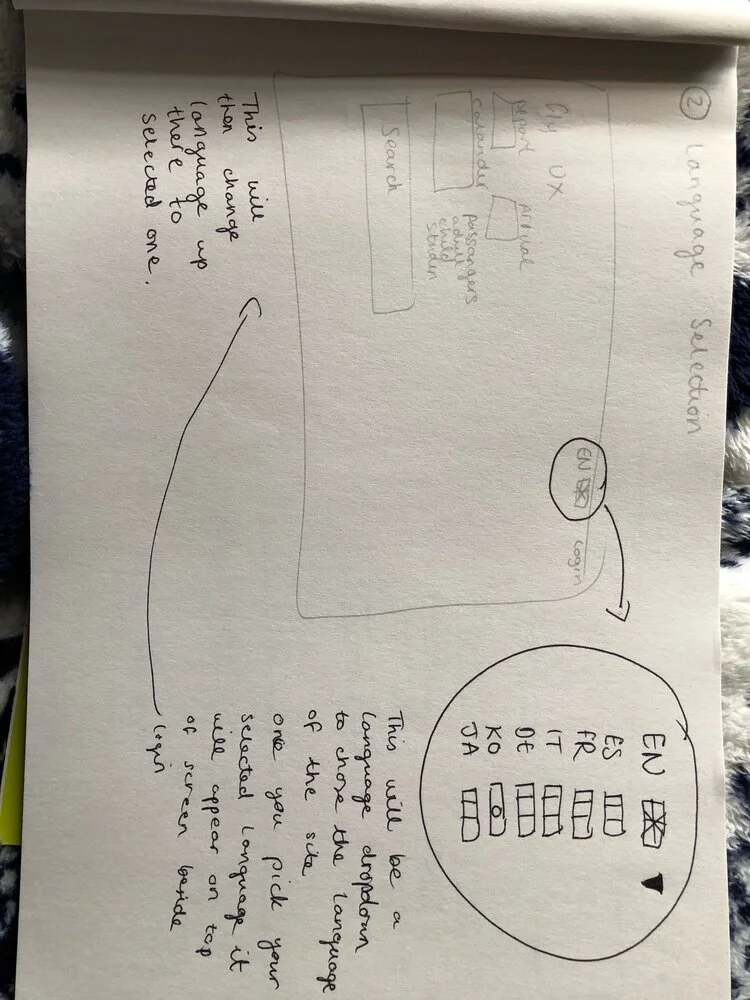 ② Language Selection
Fly UX
EN
Login
depart
arrival
calander
passangers
adult
child
studen
Search
EN
ES
FR
IT
DE
KO
JA
This will be a
language dropdown
to chose the language
of the site
one you pick your
selected language it
will appear on top
of screen beside
login
This will
then change
language up
there to
selected one.